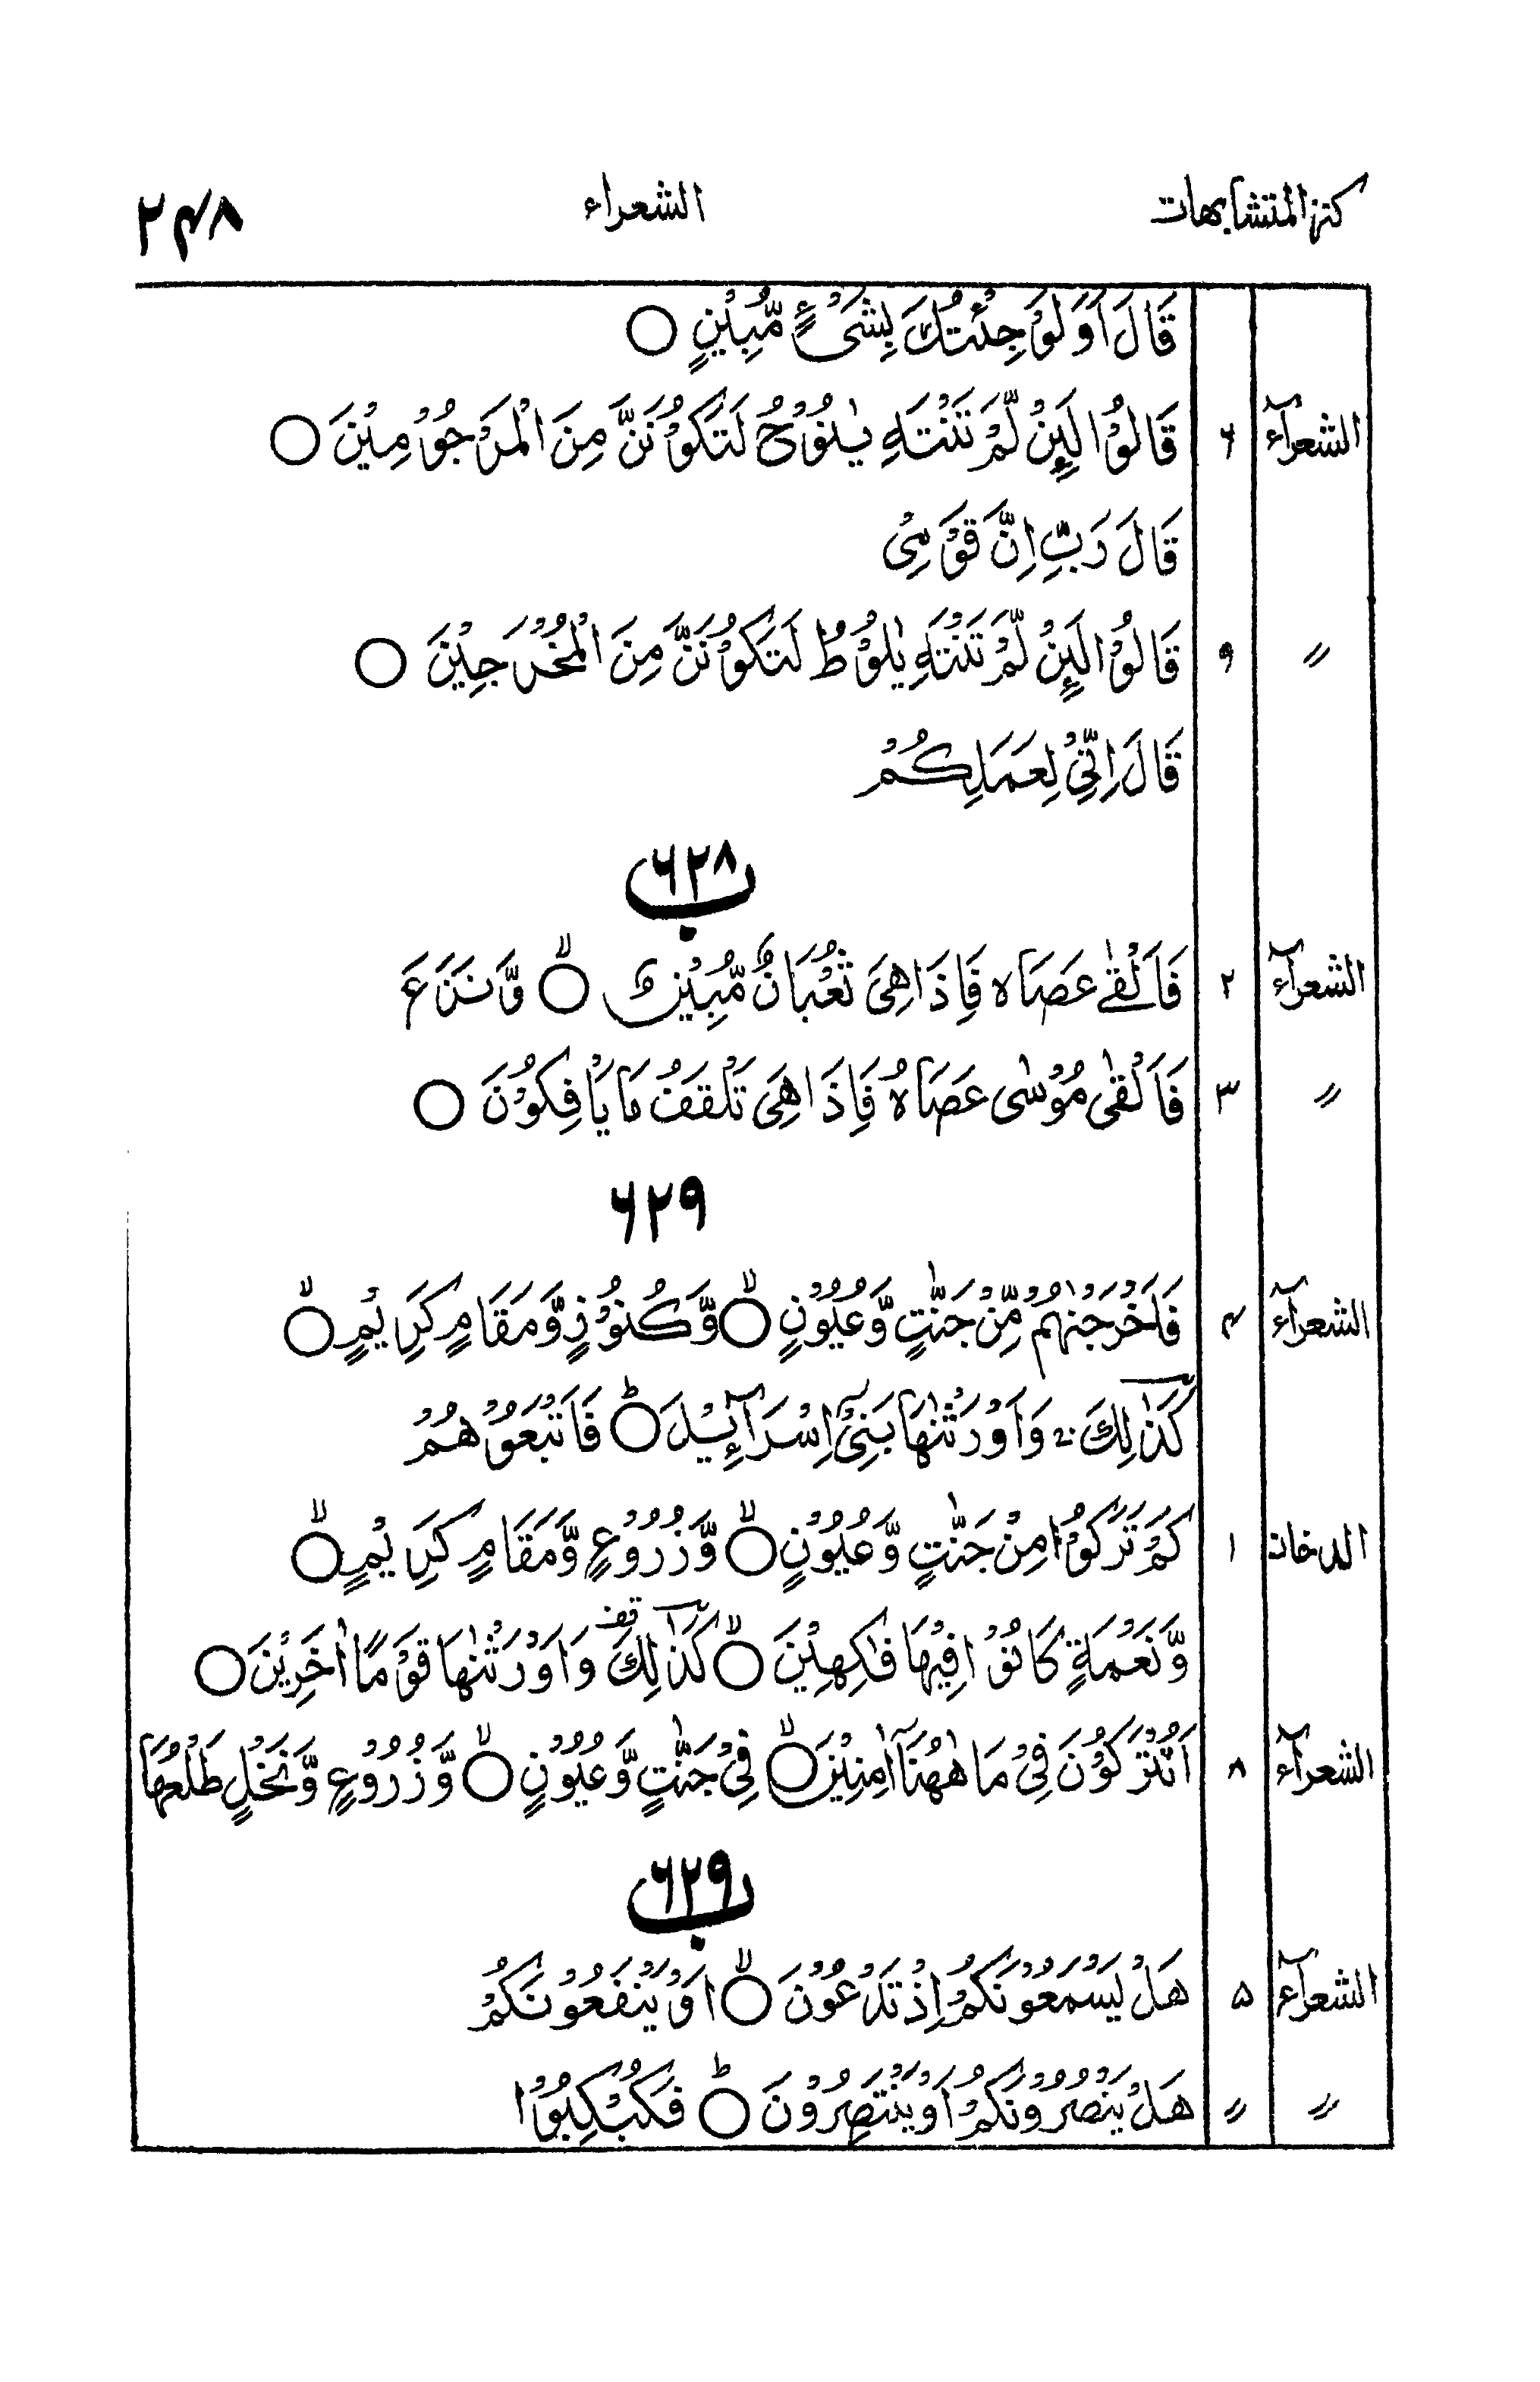 كنز المتشابهات الشعراء ۲۴۸
قَالَ اَوَلَوْ جِئْتُكَ بِشَیْءٍ مُّبِیْنٍ ○
الشعرآء ۶ قَالُوْا لَئِنْ لَّمْ تَنْتَهِ یٰنُوْحُ لَتَكُوْنَنَّ مِنَ الْمَرْجُوْمِیْنَ ○
قَالَ رَبِّ اِنَّ قَوْمِیْ
〃 ۹ قَالُوْا لَئِنْ لَّمْ تَنْتَهِ یٰلُوْطُ لَتَكُوْنَنَّ مِنَ الْمُخْرَجِیْنَ ○
قَالَ اِنِّیْ لِعَمَلِكُمْ
۶۲۸ ب
الشعرآء ۲ فَاَلْقٰی عَصَاہ فَاِذَا هِیَ ثُعْبَانٌ مُّبِیْنٌ ○ۙ وَّنَزَعَ
〃 ۳ فَاَلْقٰی مُوْسٰی عَصَاهُ فَاِذَا هِیَ تَلْقَفُ مَا یَاْفِكُوْنَ ○
۶۲۹
الشعرآء ۴ فَاَخْرَجْنٰهُمْ مِّنْ جَنّٰتٍ وَّعُیُوْنٍ ○ۙ وَّكُنُوْزٍ وَّمَقَامٍ كَرِیْمٍ ○ۙ
كَذٰلِكَ وَاَوْرَثْنٰهَا بَنِیْۤ اِسْرَآءِیْلَ ○ؕ فَاَتْبَعُوْهُمْ
الدخان ۱ كَمْ تَرَكُوْا مِنْ جَنّٰتٍ وَّعُیُوْنٍ ○ۙ وَّزُرُوْعٍ وَّمَقَامٍ كَرِیْمٍ ○ۙ
وَّنَعْمَةٍ كَانُوْا فِیْهَا فٰكِهِیْنَ ○ۙ كَذٰلِكَ قف وَاَوْرَثْنٰهَا قَوْمًا اٰخَرِیْنَ ○
الشعرآء ۸ اَتُتْرَكُوْنَ فِیْ مَا هٰهُنَاۤ اٰمِنِیْنَ ○ۙ فِیْ جَنّٰتٍ وَّعُیُوْنٍ ○ۙ وَّزُرُوْعٍ وَّنَخْلٍ طَلْعُهَا
۶۲۹ ب
الشعرآء ۵ هَلْ یَسْمَعُوْنَكُمْ اِذْ تَدْعُوْنَ ○ۙ اَوْ یَنْفَعُوْنَكُمْ
〃 〃 هَلْ یَنْصُرُوْنَكُمْ اَوْ یَنْتَصِرُوْنَ ○ؕ فَكُبْكِبُوْا